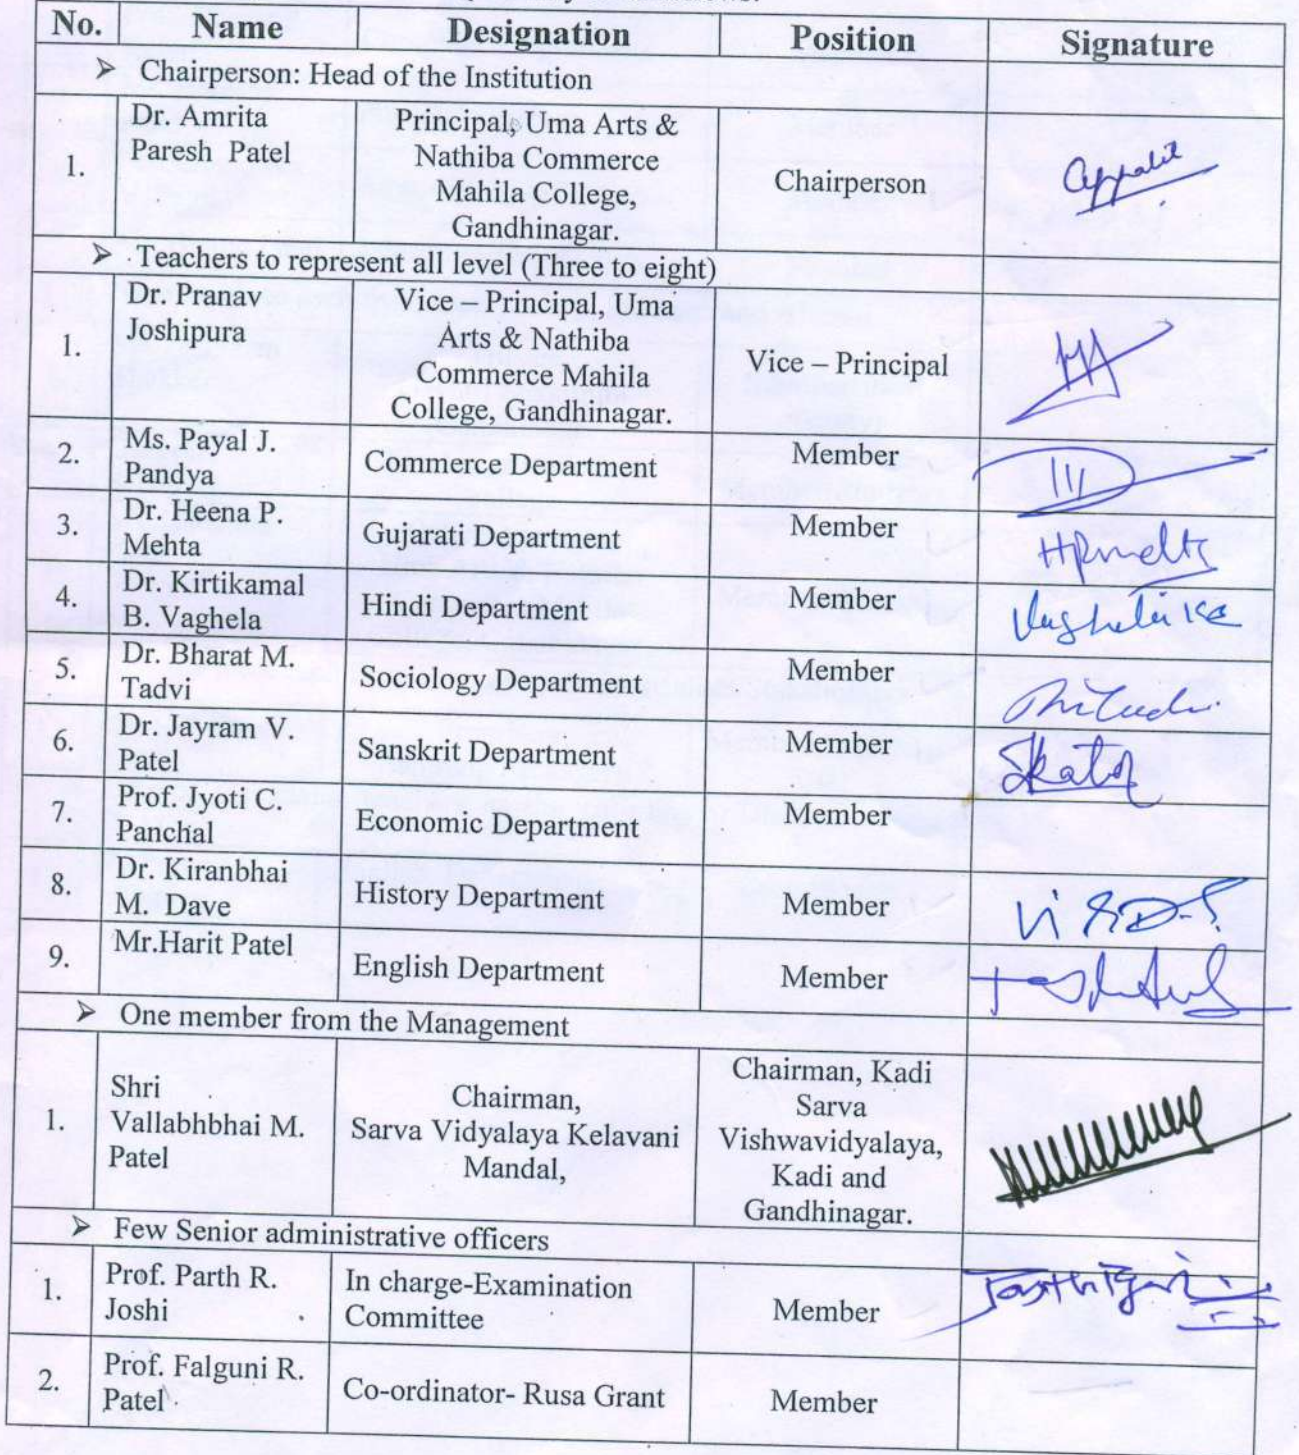 No. Name Designation Position Signature
➢ Chairperson: Head of the Institution
1. Dr. Amrita
Paresh Patel
Principal, Uma Arts &
Nathiba Commerce
Mahila College,
Gandhinagar.
Chairperson
➢ Teachers to represent all level (Three to eight)
1. Dr. Pranav
Joshipura
Vice – Principal, Uma
Arts & Nathiba
Commerce Mahila
College, Gandhinagar.
Vice – Principal
2. Ms. Payal J.
Pandya
Commerce Department
Member
3. Dr. Heena P.
Mehta
Gujarati Department
Member
HPMehta
4. Dr. Kirtikamal
B. Vaghela
Hindi Department
Member
5. Dr. Bharat M.
Tadvi
Sociology Department
Member
6. Dr. Jayram V.
Patel
Sanskrit Department
Member
7. Prof. Jyoti C.
Panchal
Economic Department
Member
8. Dr. Kiranbhai
M. Dave
History Department
Member
9. Mr.Harit Patel
English Department
Member
➢ One member from the Management
1. Shri
Vallabhbhai M.
Patel
Chairman,
Sarva Vidyalaya Kelavani
Mandal,
Chairman, Kadi
Sarva
Vishwavidyalaya,
Kadi and
Gandhinagar.
➢ Few Senior administrative officers
1. Prof. Parth R.
Joshi
In charge-Examination
Committee
Member
2. Prof. Falguni R.
Patel
Co-ordinator- Rusa Grant
Member